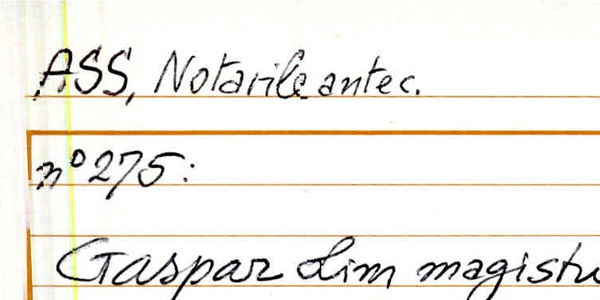 ASS, Notarile antec.
n° 275:
Gaspar olim magistr